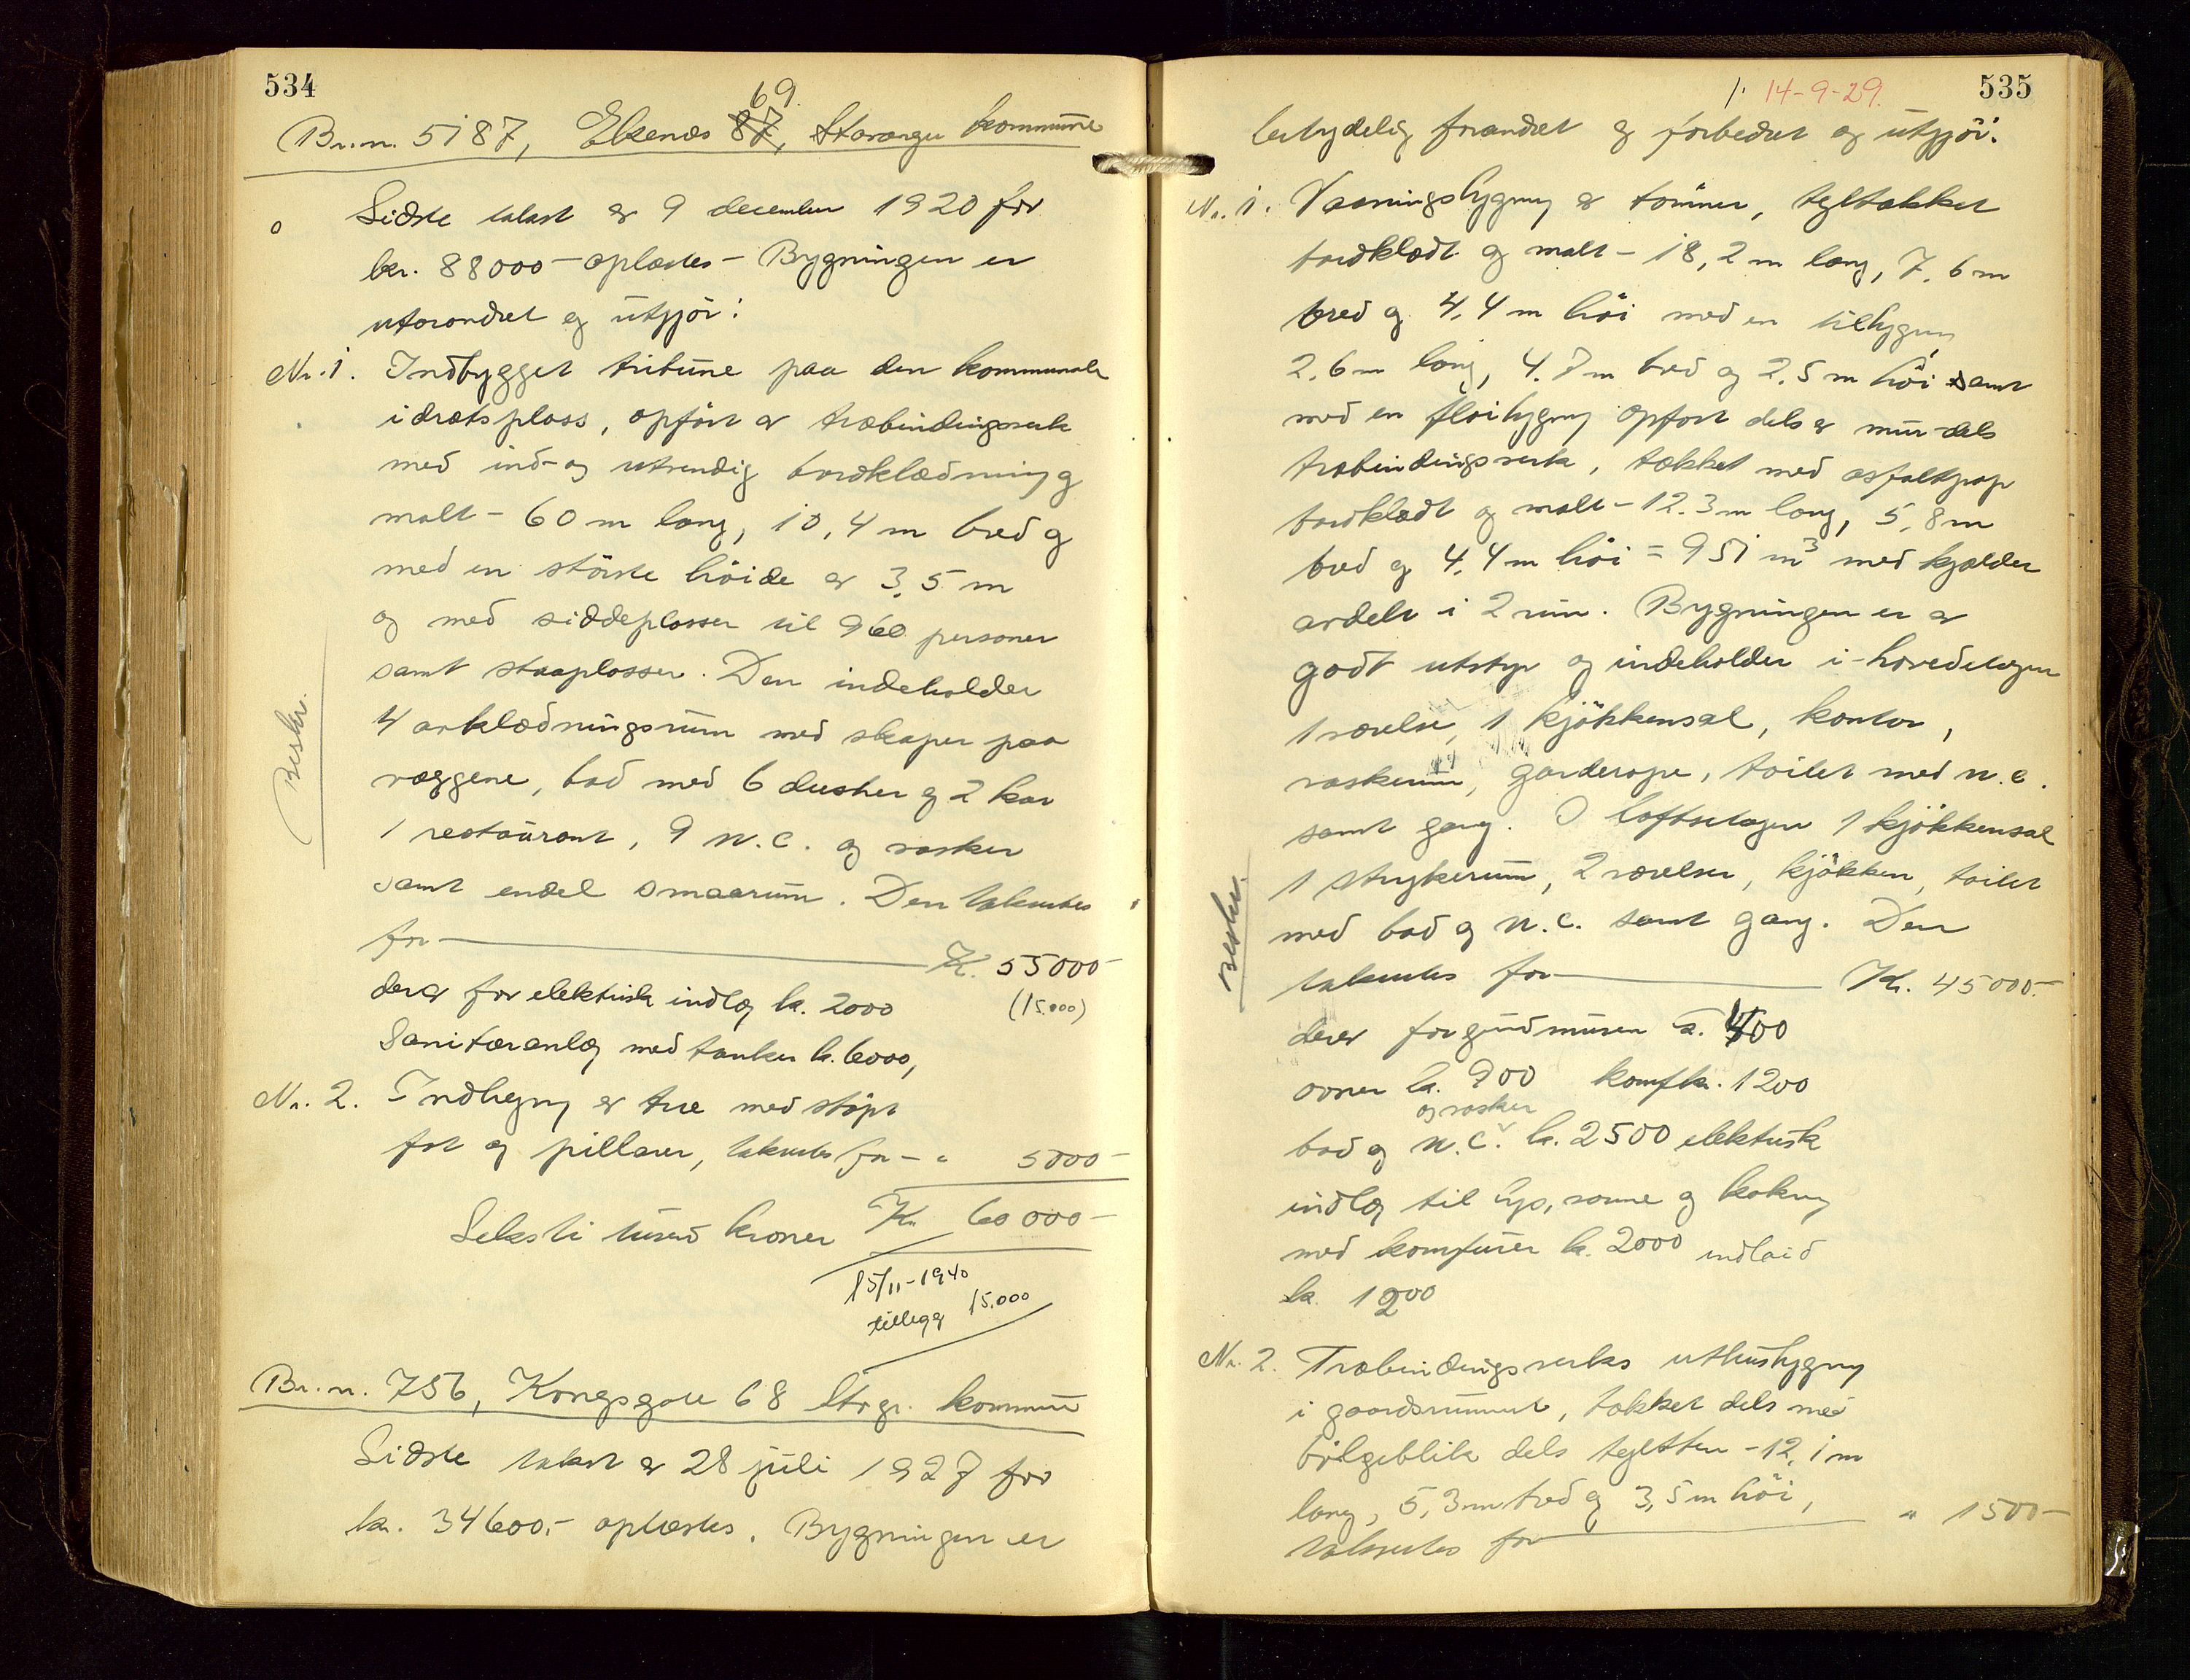 534
69.
Br.n. 5187, Ekenæs 87, Stavanger kommune
o Sidste takst er 9 december 1920 for
kr. 88000 - oplæstes - Bygningen er
uforandret og utgjør:
Nr. 1. Indbygget tribune paa den kommunale
idrætsplass, opført av træbindingsverk
med ind- og utvendig bordklædning og
malt - 60 m lang, 10,4 m bred og
med en største høide av 3,5 m
og med siddeplasser til 960 personer
samt staaplasser. Den indeholder
4 avklædningsrum med skaper paa
væggene, bad med 6 dusher og 2 kar
1 restaurant, 9 w.c. og vasker
samt endel smaarum. Den takseres
for Kr. 55000-
derav for elektrisk indlæg kr. 2000 (15.000)
Sanitæranlæg med tanker kr. 6000,
Beskr.
Nr. 2. Indhegning av træ med støpt
fot og pillarer, takseres for - " 5000-
Seksti tusen kroner Kr 60000-
15/11-1940
tillegg 15.000
Br.n. 756, Kongsgate 68 Stvgr. kommune
Sidste takst er 28 juli 1927 for
kr. 34600,- oplæstes. Bygningen er
1. 14-9-29. 535
betydelig forandret og forbedret og utgjør:
Nr. 1. Vaaningsbygning av tømmer, tegltækket
bordklædt og malt - 18,2 m lang, 7,6 m
bred og 4,4 m høi med en tilbygning
2,6 m lang, 4,7 m bred og 2,5 m høi samt
med en fløibygning opført dels av mur - dels
træbindingsverk, tækket med asfaltpap
bordklædt og malt - 12.3 m lang, 5,8 m
bred og 4,4 m høi = 951 m3 med kjælder
avdelt i 2 rum. Bygningen er av
godt utstyr og indeholder i hovedetagen
1 værelse, 1 kjøkkensal, kontor,
vaskerum, garderope, toilet med w.c.
samt gang. I loftsetagen 1 kjøkkensal
1 strykerum, 2 værelser, kjøkken, toilet
med bad og w.c. samt gang. Den
takseres for Kr. 45000.-
Beskr.
derav for grundmuren kr. 400
ovner kr. 900 komf kr. 1200
og vasker
bad og w.c. kr. 2500 elektrisk
indlæg til lys, varme og kokning
med komfurer kr. 2000 indlaid
kr. 1200
Nr. 2. Træbindingsverks uthusbygning
i gaardsrummet, tækket dels med
bølgeblik dels teglsten - 12,1 m
lang, 5,3 m bred og 3,5 m høi,
takseres for " 1500-